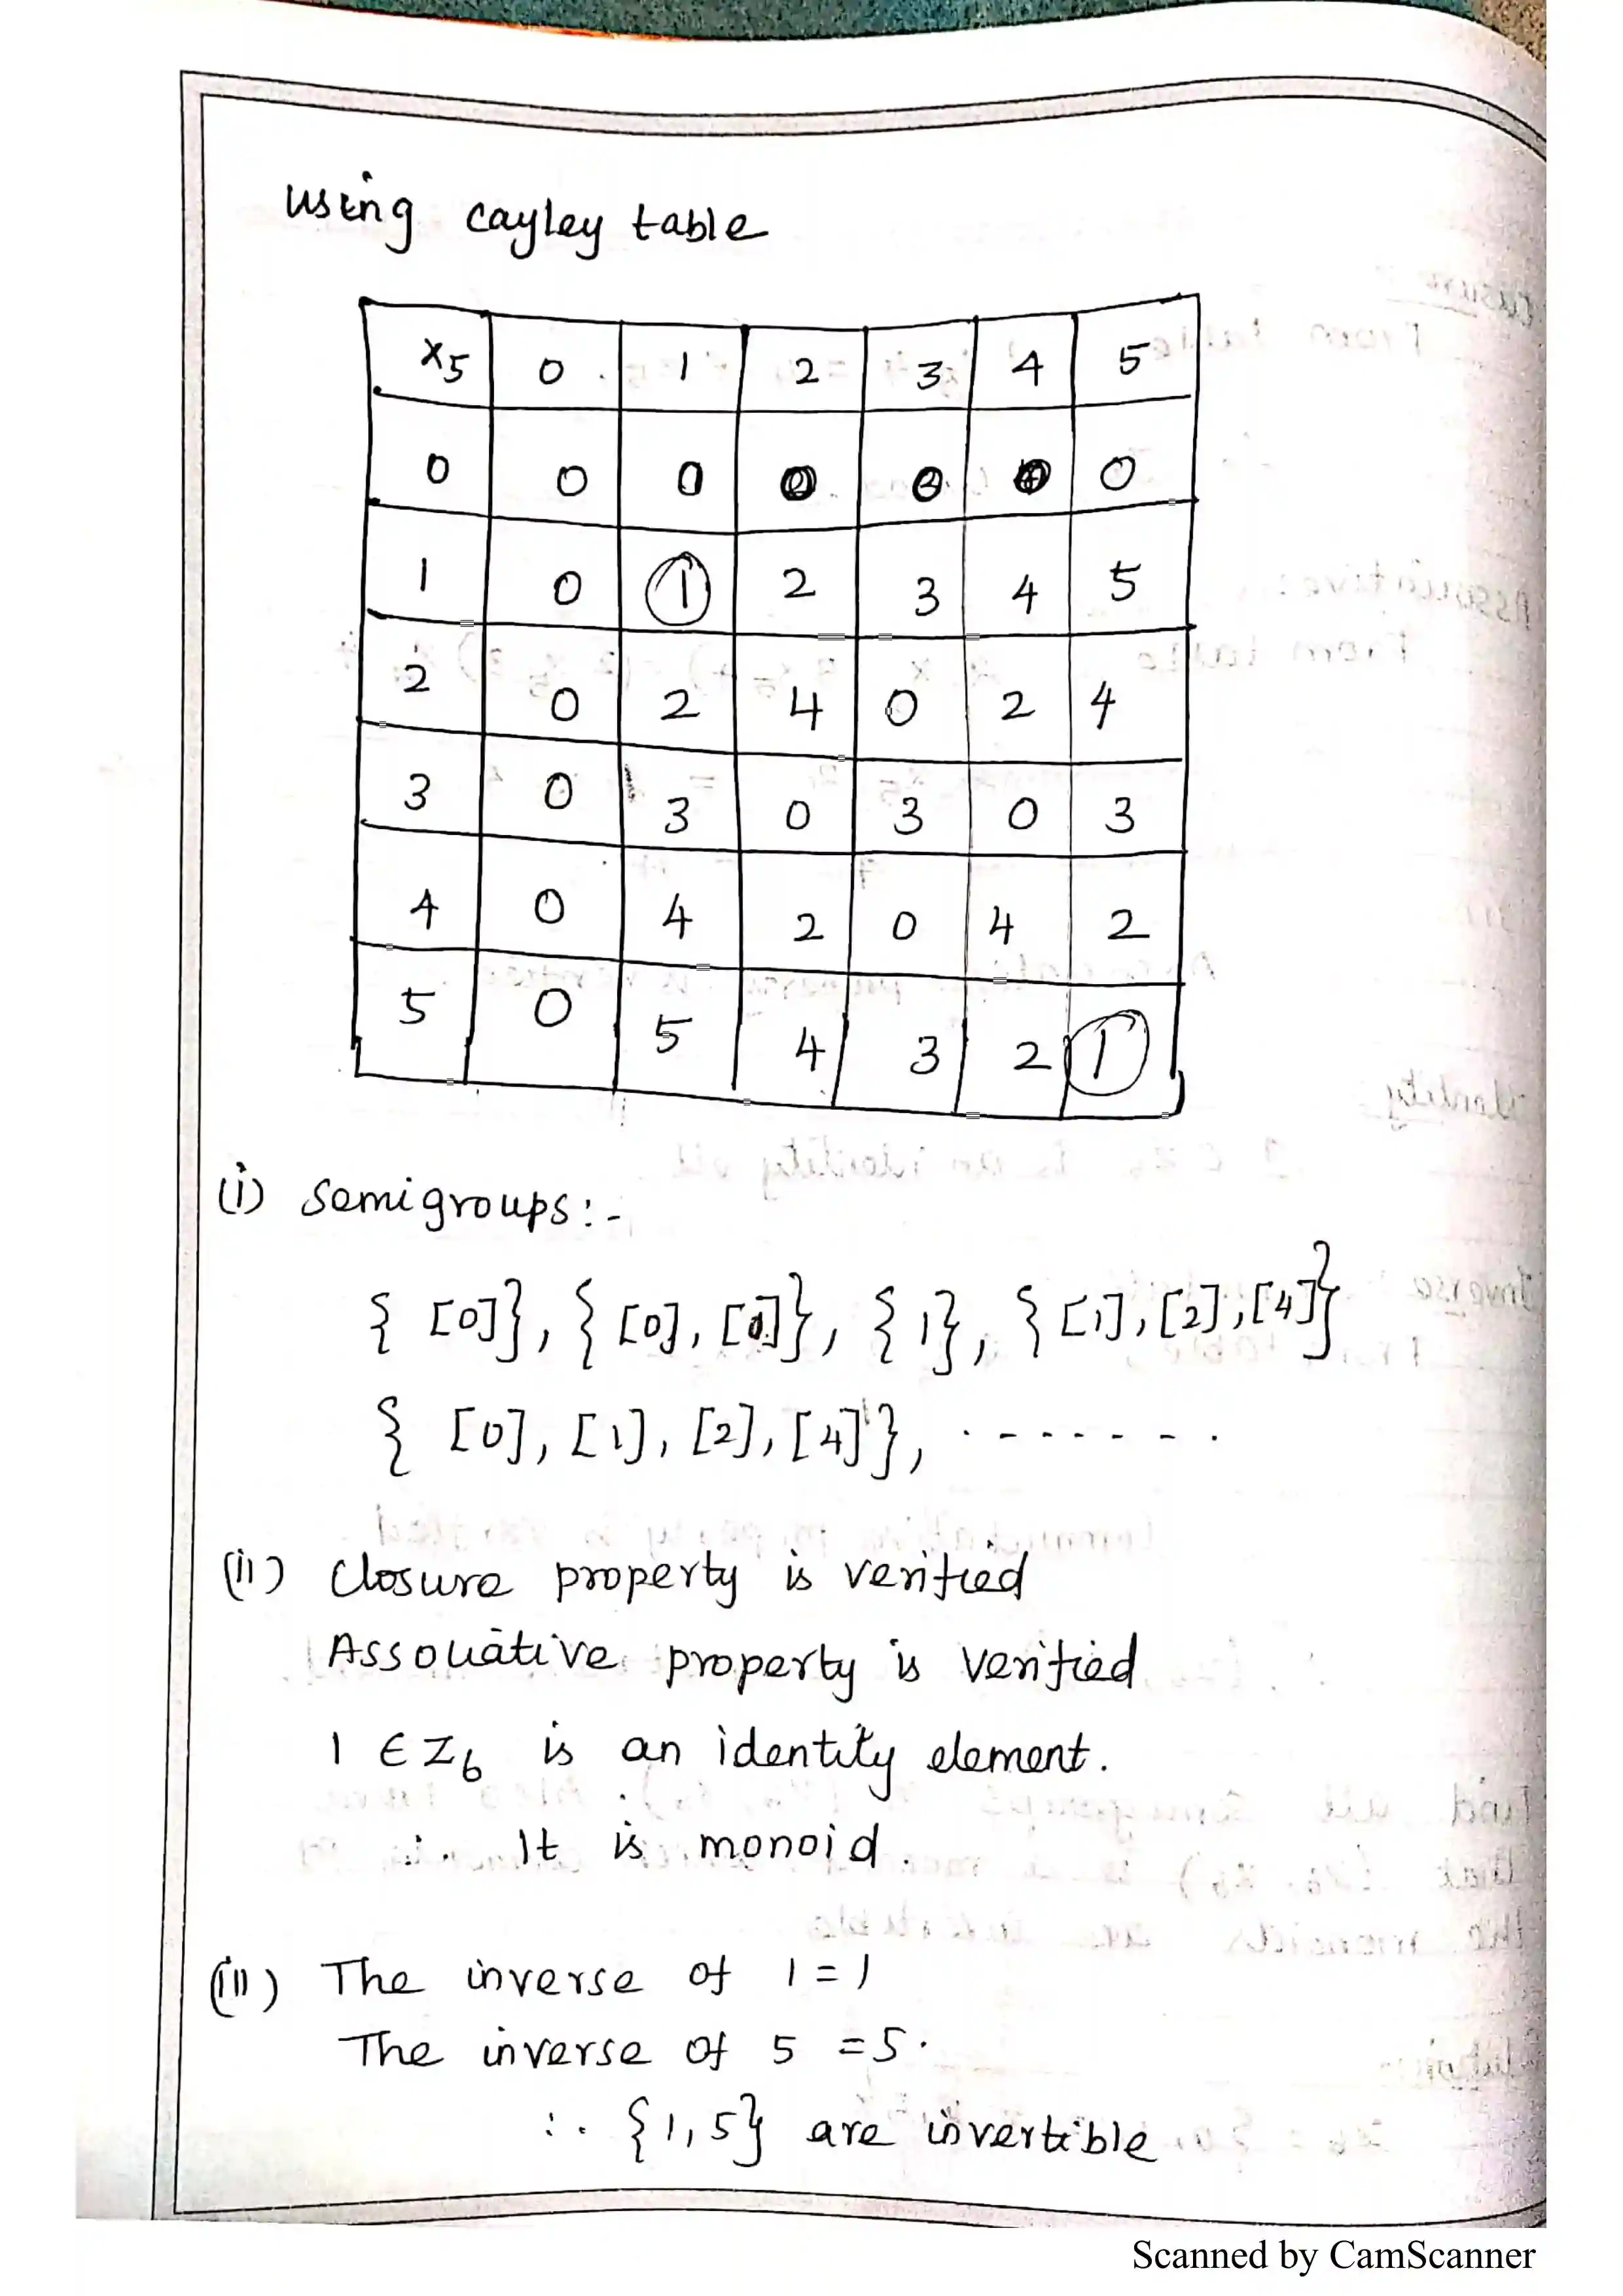 using cayley table
×5 0 1 2 3 4 5
0 0 0 0 0 0 0
1 0 1 2 3 4 5
2 0 2 4 0 2 4
3 0 3 0 3 0 3
4 0 4 2 0 4 2
5 0 5 4 3 2 1
(i) Semigroups:-
{ [0]}, { [0], [1]}, { 1}, { [1], [2], [4]}
{ [0], [1], [2], [4] }, .......
(ii) Closure property is verified
Associative property is verified
1 ∈ Z6 is an identity element.
∴ It is monoid.
(iii) The inverse of 1 = 1
The inverse of 5 = 5.
∴ {1, 5} are invertible
Scanned by CamScanner